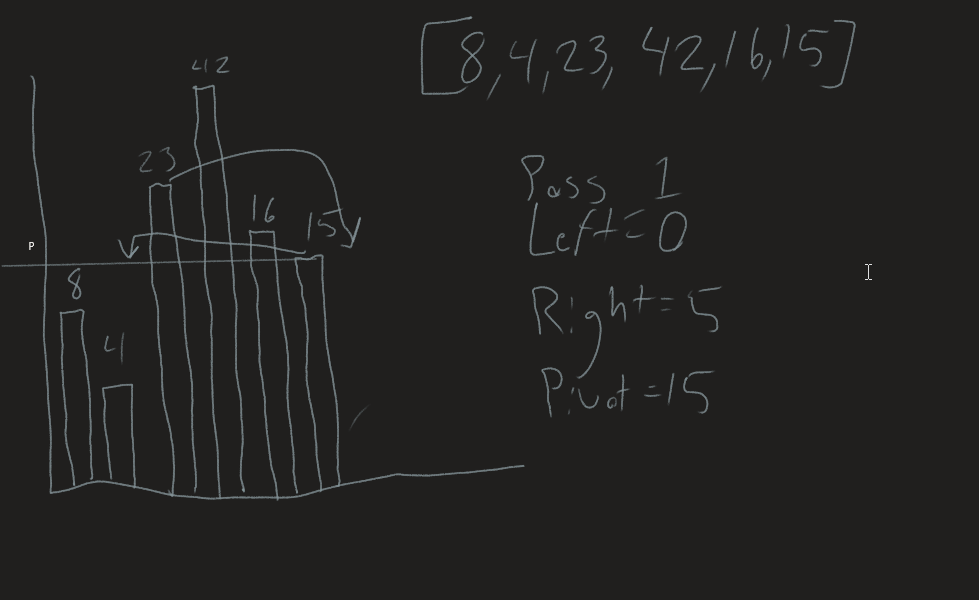 [8,4,23, 42,16,15]
42
23
16
15
P
8
4
Pass 1
Left=0
Right=5
Pivot=15